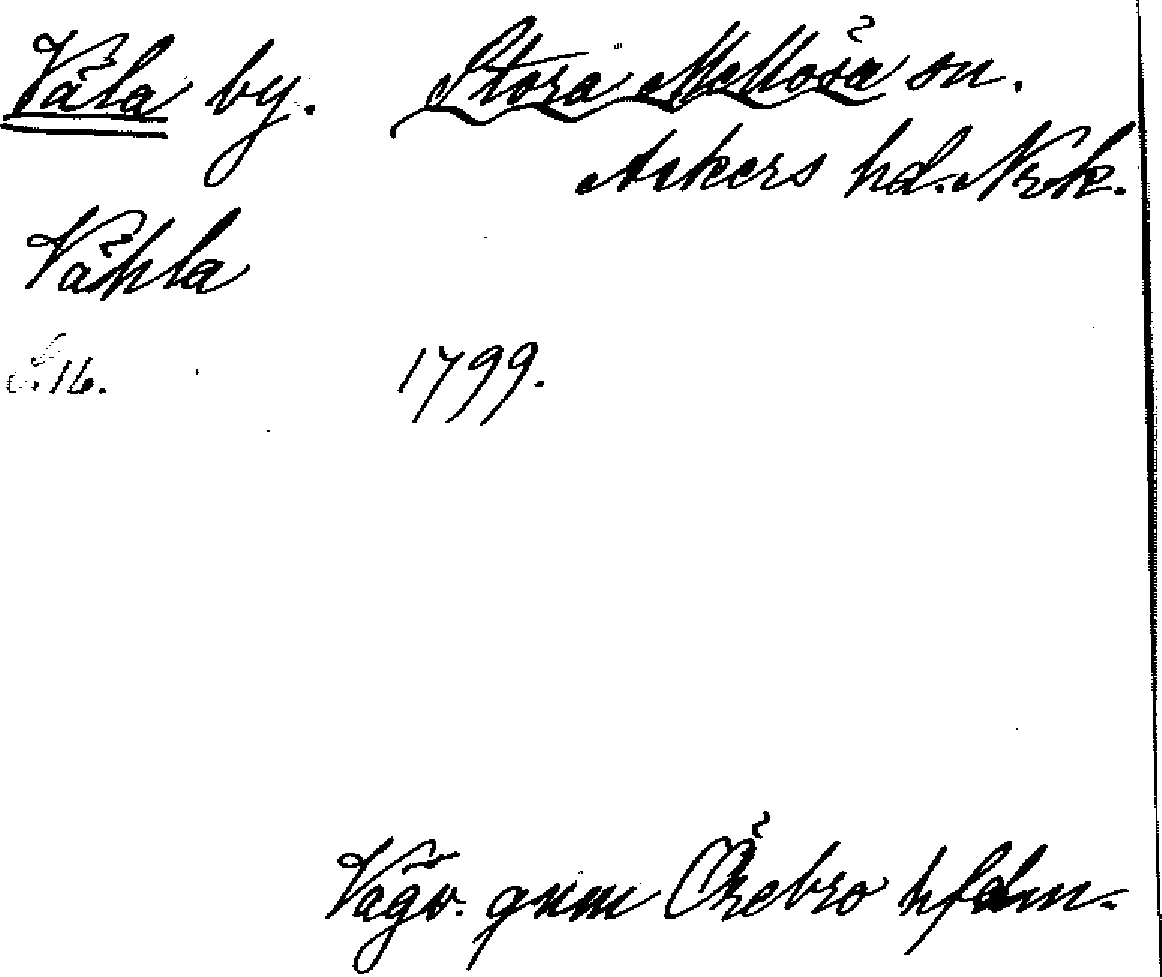 Våla by. Stora Mellösa sn.
Askers hd. Nrk.
Våhla
S. 16. 1799.
Vägv. gnm Örebro hfdm-